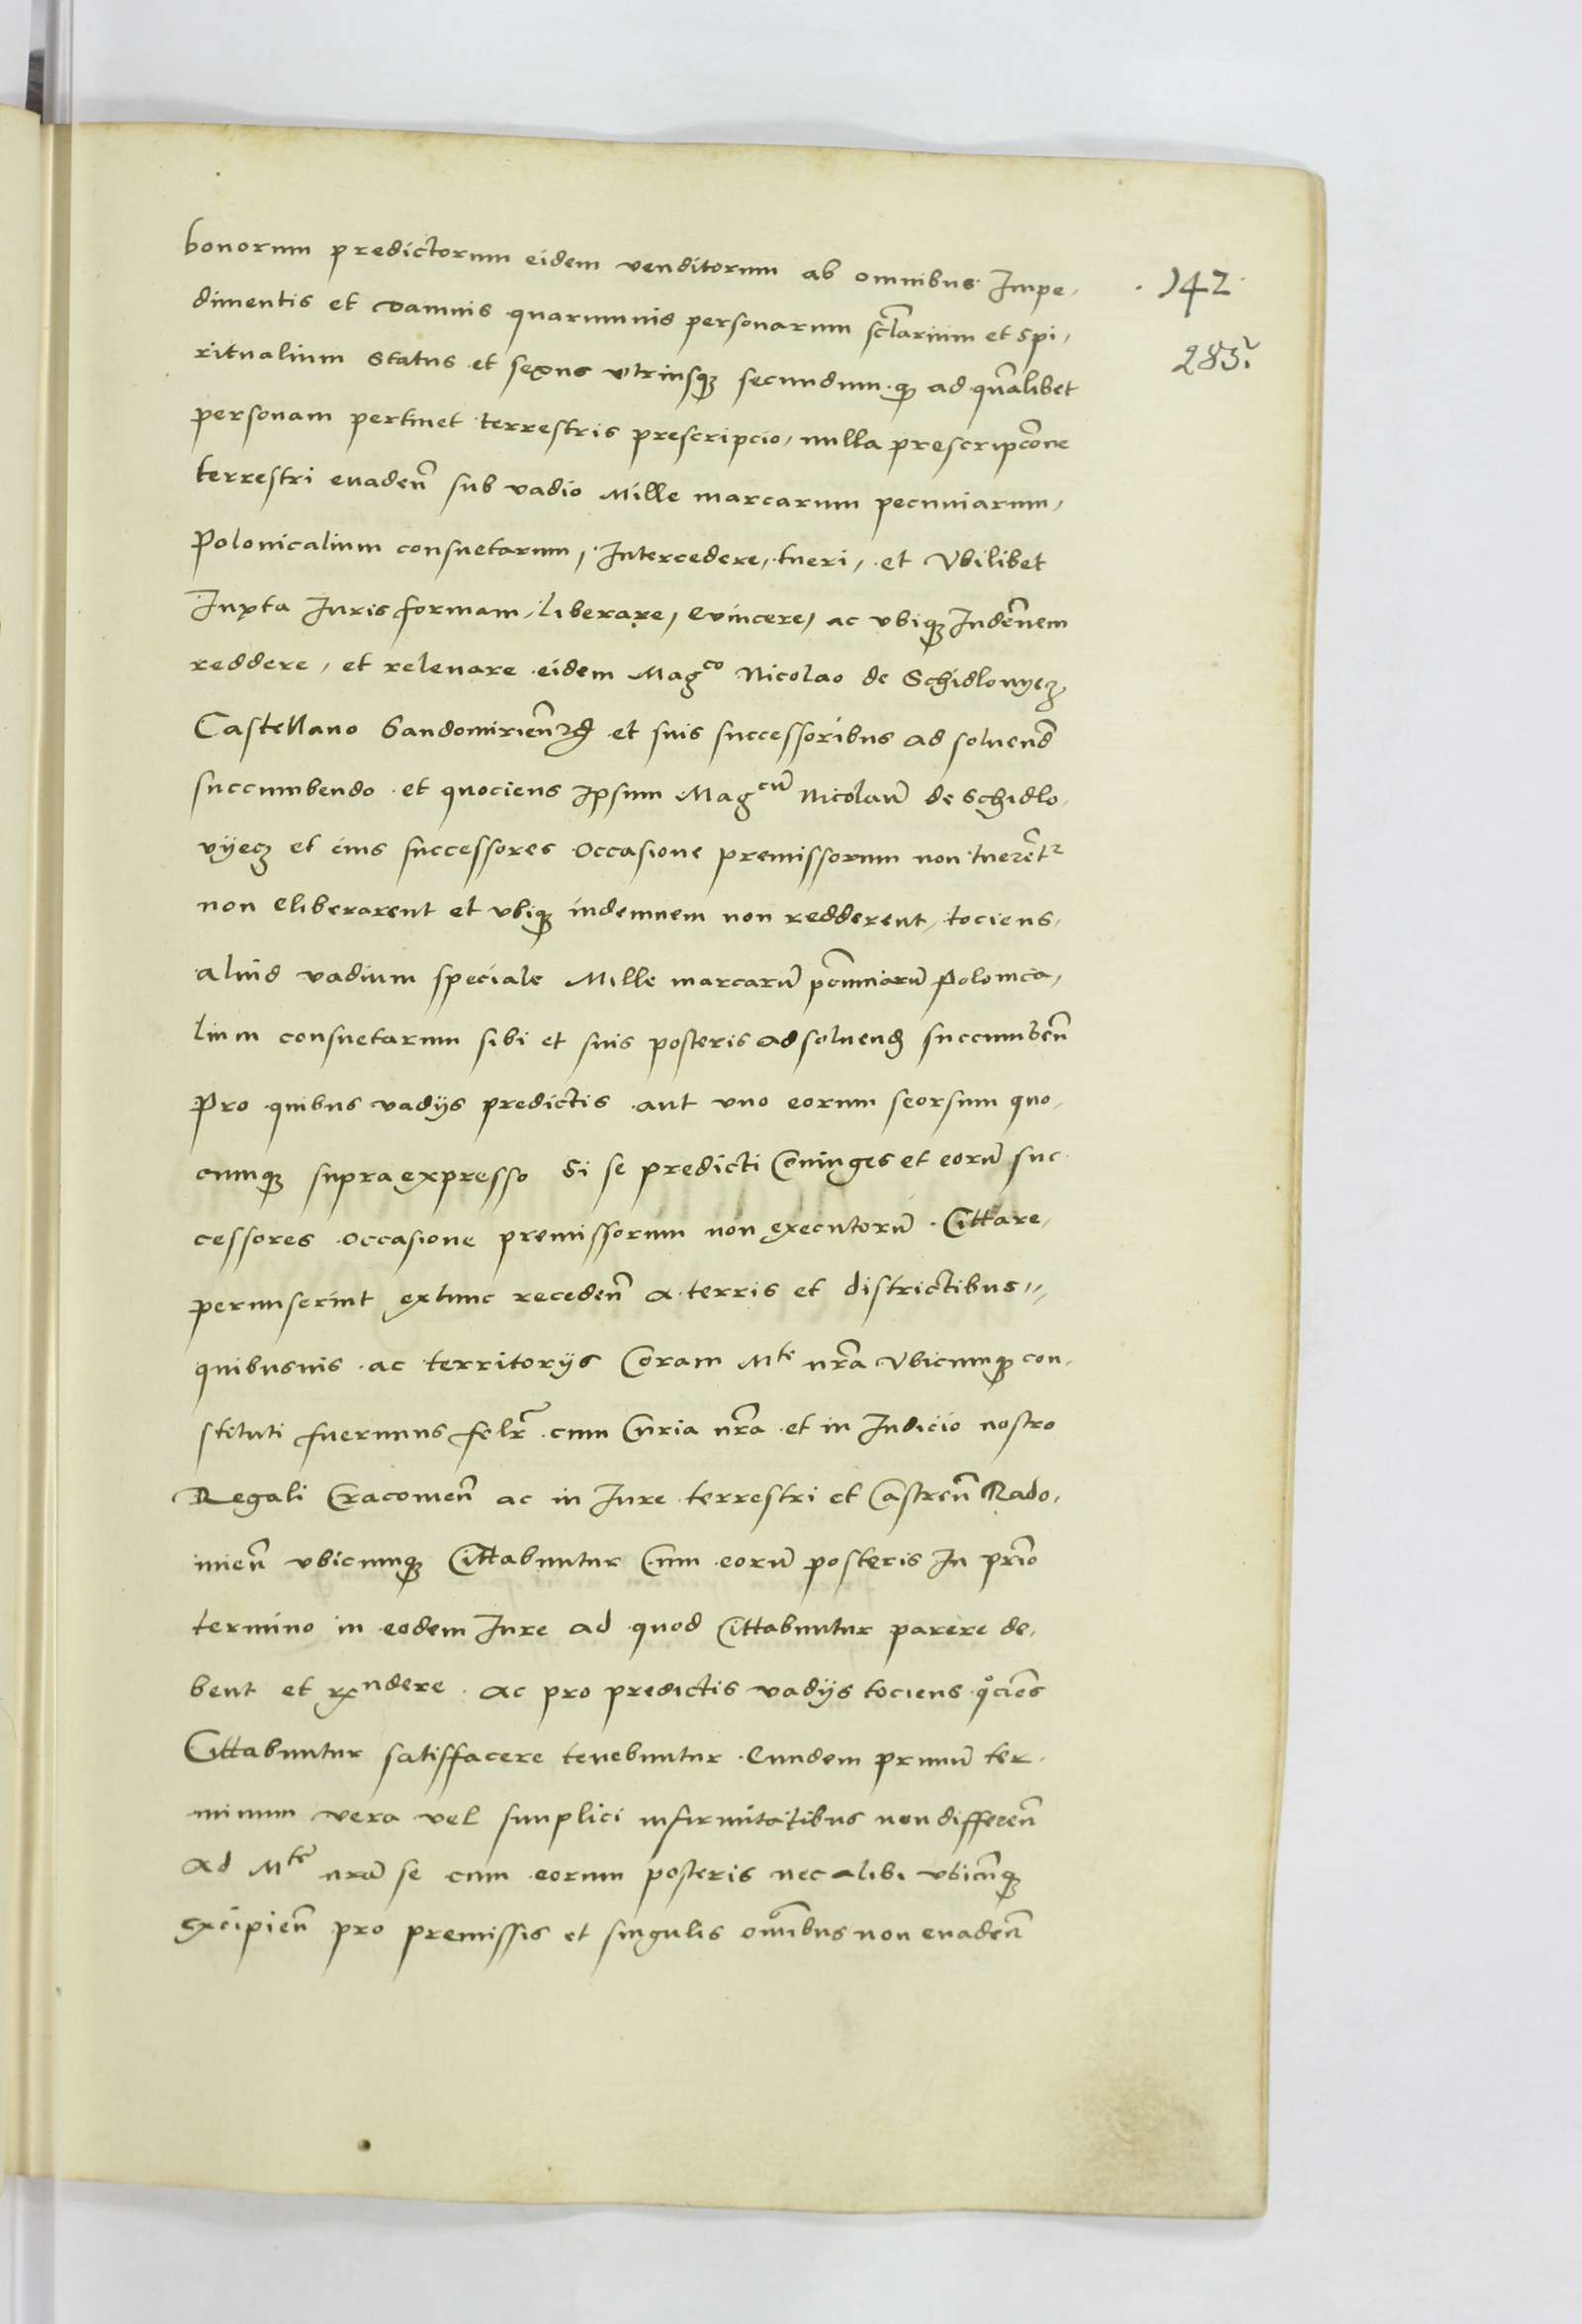 bonorum predictorum eidem venditorum ab omnibus Impe,
. 142
dimentis et Damnis quarumuis personarum sclarium et spi,
285.
ritualium status et sexus vtriusqz secundum qz ad qumlibet
personam pertinet terrestris prescripcio, nulla prescripcone
terrestri euaden sub vadio Mille marcarum pecuniarum,
Polonicalium consuetarum, Intercedere, tueri, et Vbilibet
Juxta Juris formam, liberare, Evincere, ac vbiqz Indemnem
reddere, et releuare eidem Magco Nicolao de Schidlovyecz
Castellano Sandomirien et suis successoribus ad soluend
succumbendo et quociens Ipsum Magcum Nicolaum de Schidlo,
vyecz et eius successores Occasione premissorum non tuerentr
non Eliberarent et vbiqz indemnem non redderent, tociens,
aliud vadium speciale Mille marcarum pecuniarum Polonica,
lium consuetarum sibi et suis posteris ad soluend succumben
Pro quibus vadijs predictis aut vno eorum seorsum quo,
cunqz supra expresso Si se predicti Coniuges et eorum suc
cessores Occasione premissorum non executorum Cittare,
permiserint extunc receden a terris et districtibus,,
quibusuis ac territorijs Coram Mte nra Vbicunqz con,
stituti fuerimus felr cum Curia nra et in Judicio nostro
Regali Cracouien ac in Jure terrestri et Castren Rado,
mien vbicunqz Cittabuntur Cum eorum posteris In primo
termino in eodem Jure ad quod Cittabuntur parere de,
bent et rxndere ac pro predictis vadijs tociens qociens
Cittabuntur satisfacere tenebuntur Eundem primum ter
minum vera vel simplici infirmitatibus non differen
ad Mtem nram se cum eorum posteris nec alibi vbicunqz
Excipien pro premissis et singulis omnibus non euaden